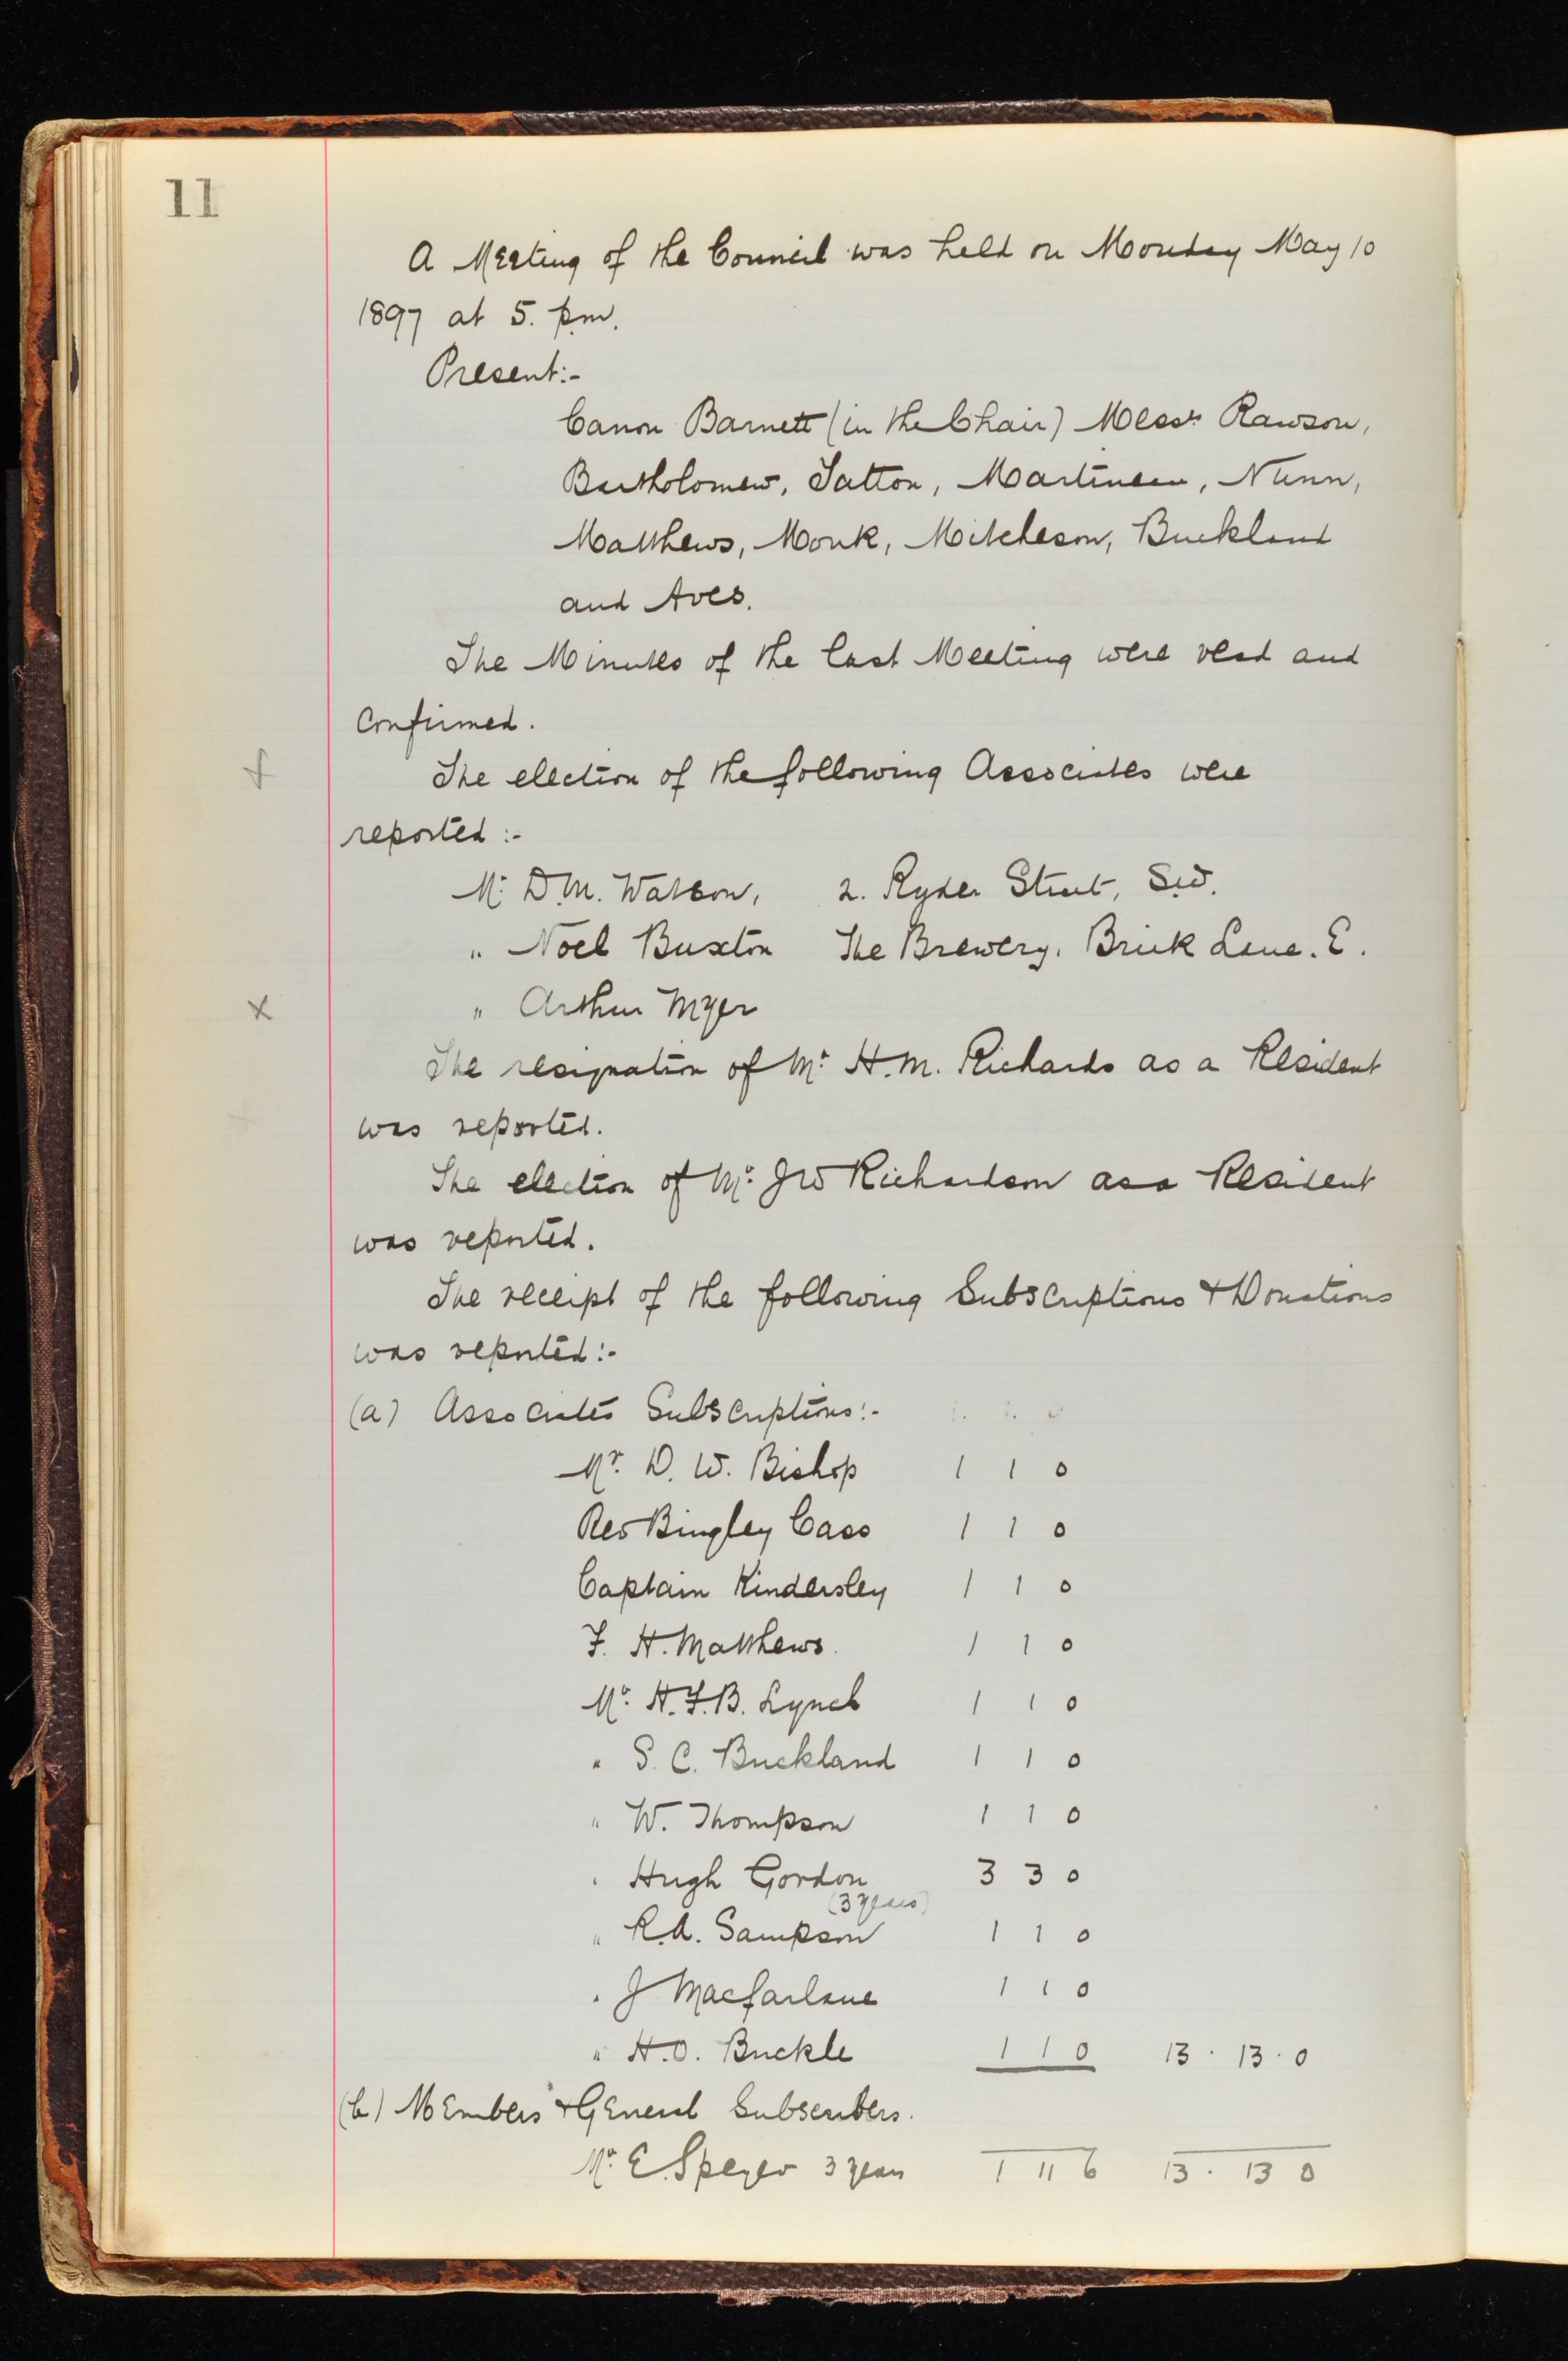 11
A Meeting of the Council was held on Monday May 10
1897 at 5. pm.
Present:-
Canon Barnett (in the Chair) Messrs Rawson,
Bartholomew, Tatton, Martineau, Nunn,
Matthews, Monk, Mitcheson, Buckland
and Aves.
The Minutes of the last Meeting were read and
Confirmed.
The election of the following Associates were
reported:-
Mr D.M. Watson, 2. Ryder Street, S.W.
" Noel Buxton The Brewery, Brick Lane. E.
x " Arthur Myer
The resignation of Mr H.M. Richards as a Resident
was reported.
The election of Mr J W Richardson as a Resident
was reported.
The receipt of the following Subscriptions & Donations
was reported:-
(a) Associates Subscriptions:-
Mr. D. W. Bishop 1 1 0
Rev Bingley Cass 1 1 0
Captain Kindersley 1 1 0
F. H. Matthews. 1 1 0
Mr. H.F.B. Lynch 1 1 0
" S. C. Buckland 1 1 0
" W. Thompson 1 1 0
" Hugh Gordon 3 3 0
(3 years)
" R.A. Sampson 1 1 0
" J Macfarlane 1 1 0
" H.O. Buckle 1 1 0 13 . 13 . 0
(b) Members & General Subscribers.
Mr E. Speyer 3 years 1 11 6 13 . 13 0